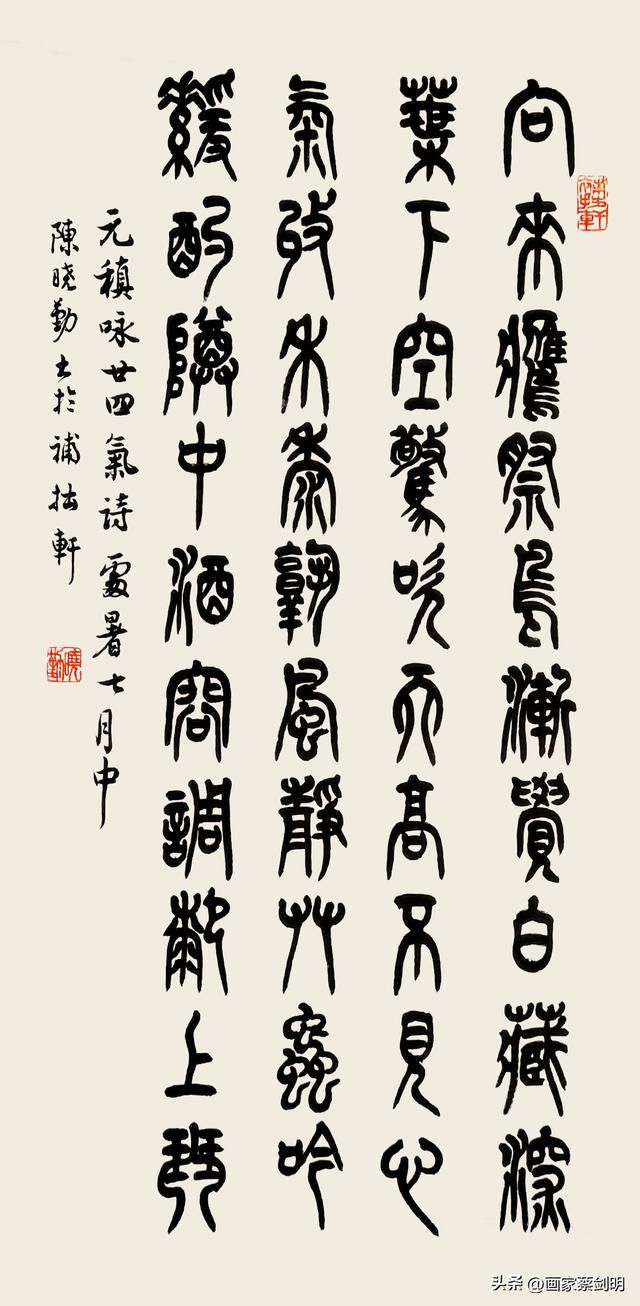 向來鷹祭鳥漸覺白藏深
葉下空驚吹天高不見心
氣收禾黍孰風靜艸蟲吟
緩酌樽中酒容調厀上琴
元稹咏廿四氣诗處暑七月中
陳晓勤书於補拙軒
头条 @画家蔡剑明